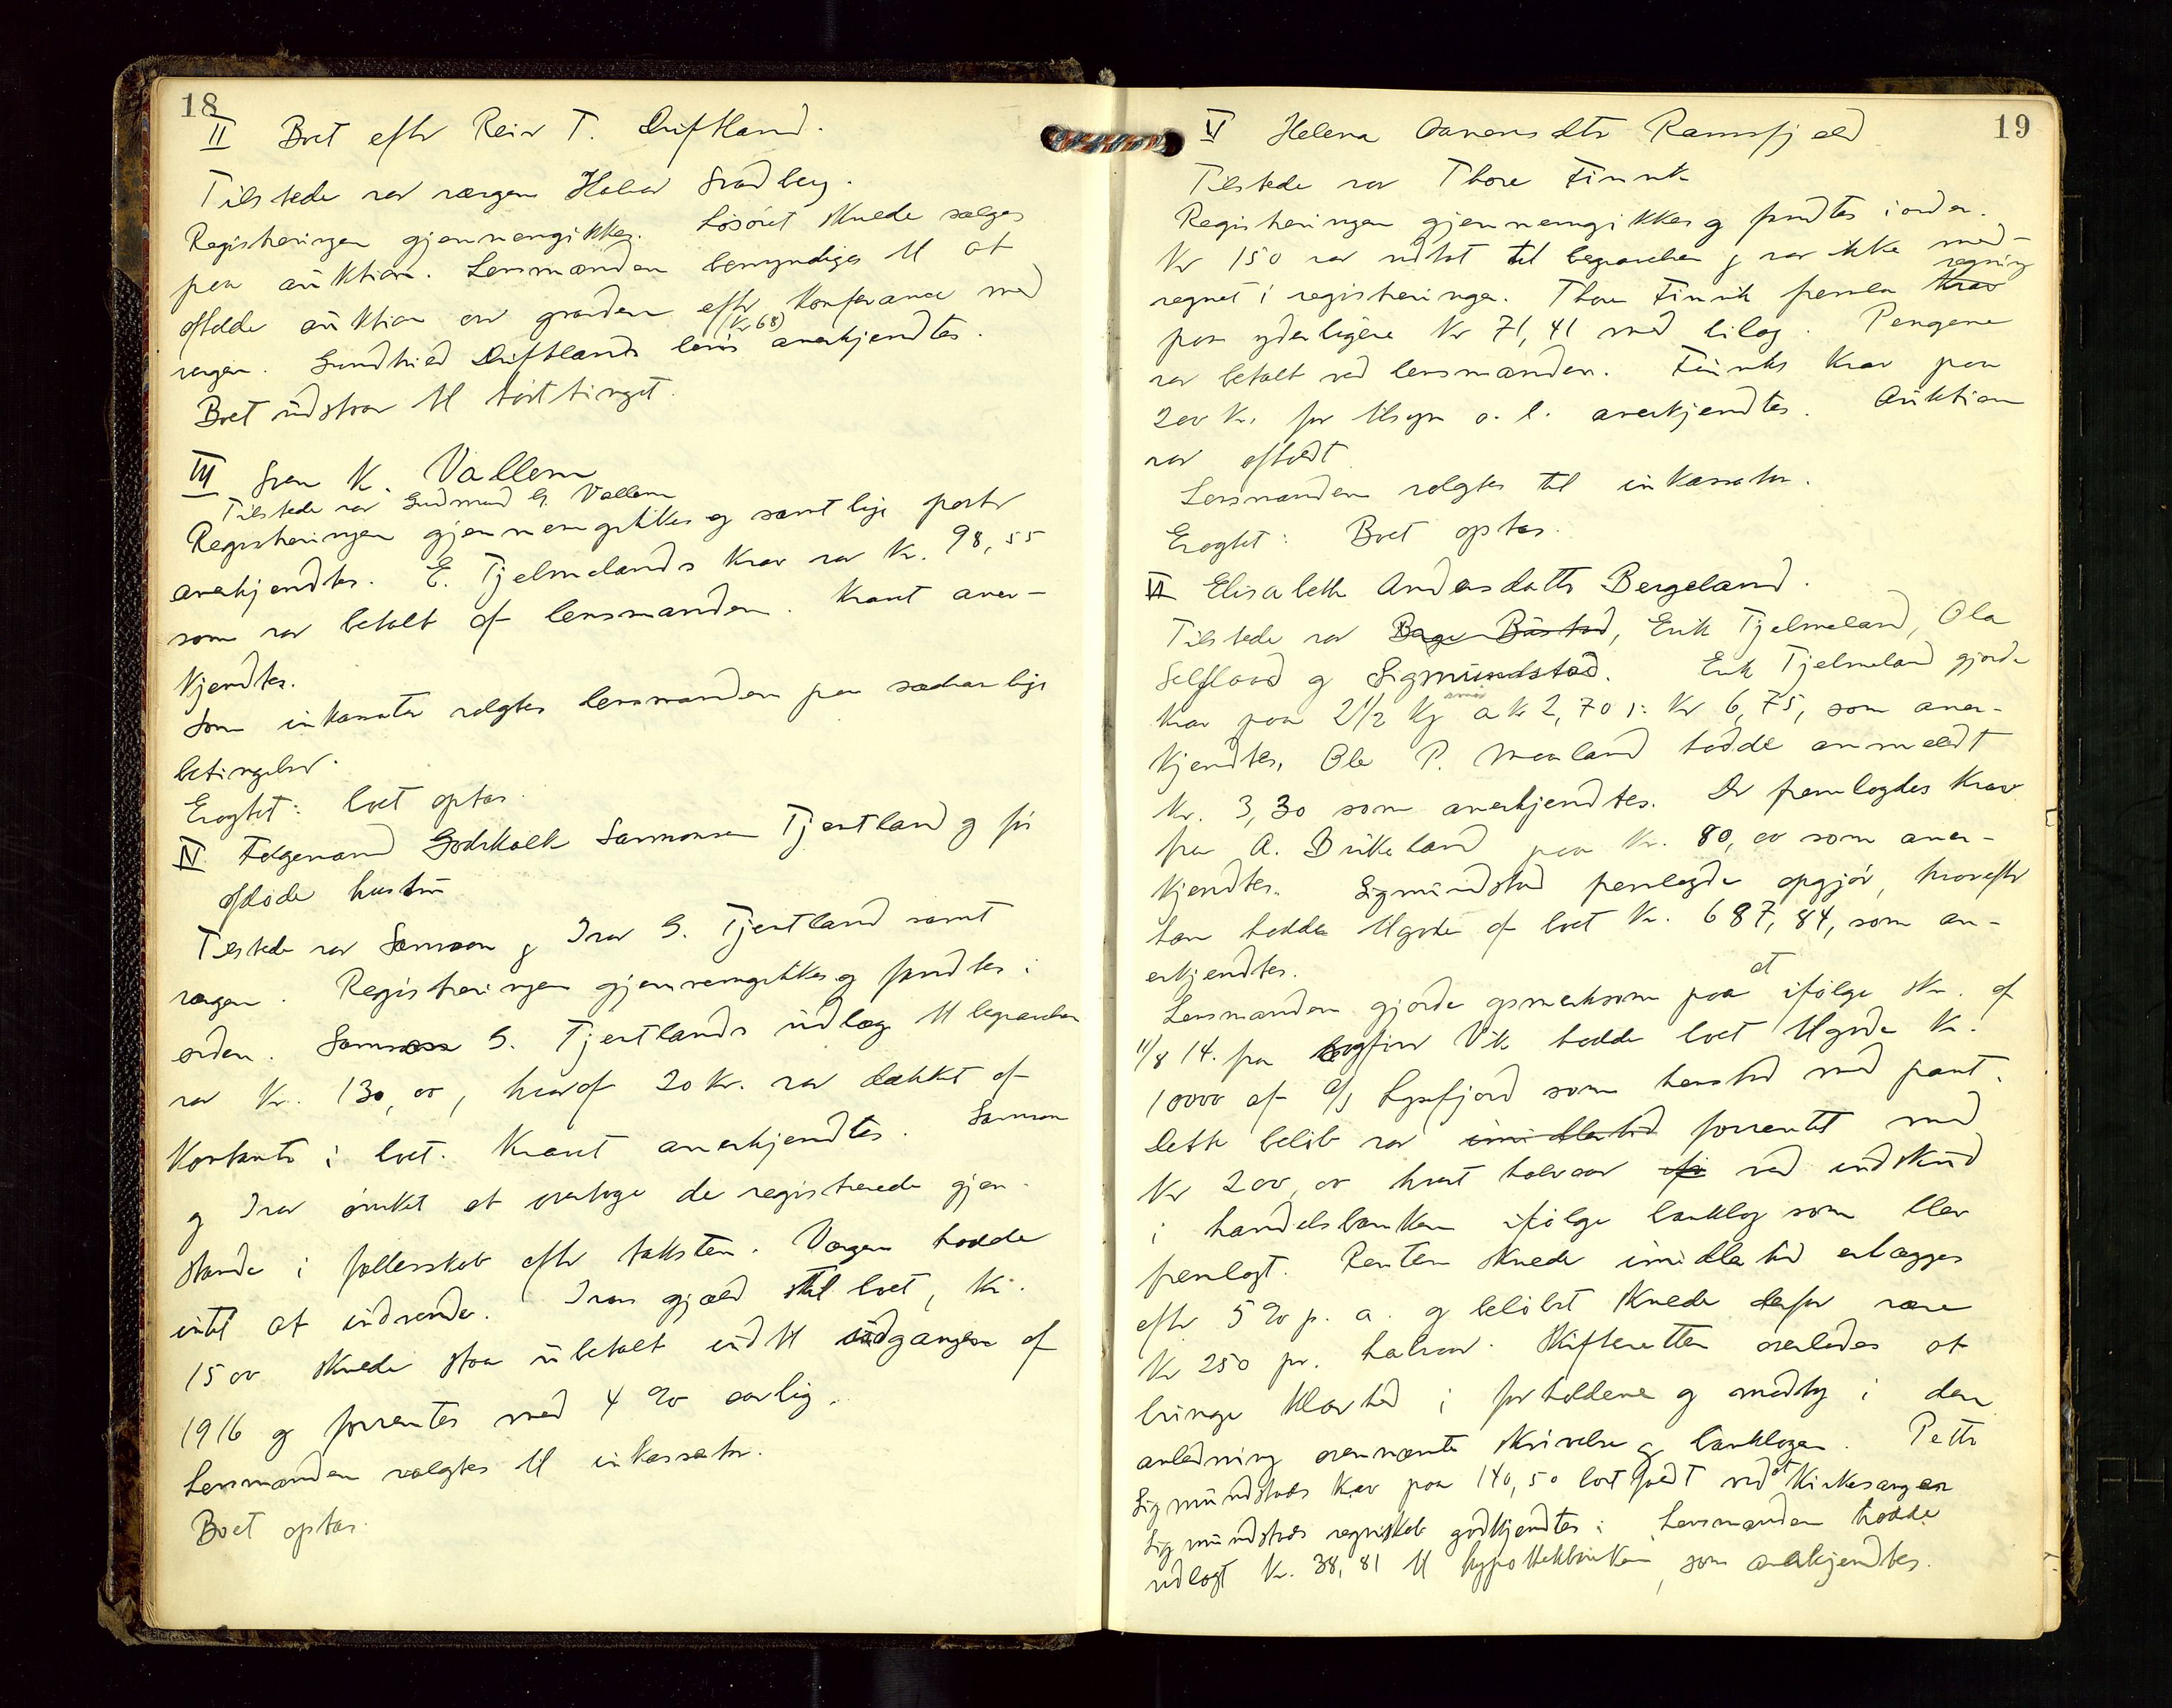 18
II Boet efter Reier T. Driftland.
Tilstede var værgen Halvor Gradberg.
Registreringen gjennemgikkes. Løsøret skulde sælges
paa auktion. Lensmanden bemyndiges til at
afholde auktion over gaarden efter konferance med
vergen. Gundhild Driftlands løns (Kr 68) anerkjendtes.
Boet udstaar til høsttinget.
III Sven K. Vallem
Tilstede var Gudmund G. Vallem
Registreringen gjennemgikkes og samtlige poster
anerkjendtes. E. Tjelmelands krav var Kr. 98,55
som var betalt af lensmanden. Kravet aner-
kjendtes.
Som inkassator valgtes lensmanden paa sædvanlige
betingelser.
Eragtet: boet optas.
IV Følgemand Godskalk Samsonsen Tjentland og før
afdøde hustru
Tilstede var Samson og Ivar G. Tjentland samt
vægen. Registreringen gjennemgikkes og fandtes i
orden. Samson G. Tjentlands udlæg til begravelsen
var Kr. 130,00, hvoraf 20 Kr. var dækket af
kontanter i boet. Kravet anerkjendtes. Samson
og Ivar ønsket at overtage de registrerede gjen-
stande i fællesskab efter taksten. Værgen hadde
intet at indvende. Ivars gjæld til boet, Kr.
1500 skulde staa ubetalt indtil udgangen af
1916 og forrentes med 4 % aarlig.
Lensmanden valgtes til inkassator.
Boet optas.
19
V Helena Aanensdtr Ramsfjeld
Tilstede var Thore Finnik
Registreringen gjennemgikkes og fandtes i orden.
Kr 150 var udtat til begravelsen og var ikke med-
regnet i registreringen. Thore Finnik fremla krav regning
paa yderligere Kr 71,41 med bilag. Pengene
var betalt ved lensmanden. Finniks krav paa
200 Kr. for tilsyn o. l. anerkjendtes. Auktion
var afholdt
Lensmanden valgtes til inkassator.
Eragtet: Boet optas.
VI Elisabeth Andersdatter Bergeland.
Tilstede var Børge Bustad, Erik Tjelmeland, Ola
Selflaad og Sigmundstad. Erik Tjelmeland gjorde
krav paa 2 1/2 kg smør a kr 2,70 s: Kr 6,75, som aner-
kjendtes, Ole P. Maaland hadde anmeldt
Kr. 3,30 som anerkjendtes. Der fremlagdes krav
fra A. Birkeland paa Kr. 80,00 som aner-
kjendtes. Sigmundstad fremlagde opgjør, hvorefter
han hadde tilgode af boet Kr. 687,84, som an-
erkjendtes.
Lensmanden gjorde opmerksom paa at ifølge skr. af
11/8 14. fra Vik hadde boet tilgode Kr.
10000 af A/S Lysefjord som henstod med pant.
Dette beløb var imidlertid forrentet med
Kr 200,00 hvert halvaar ved indskud
i handelsbanken ifølge bankbog som blev
fremlagt. Renten skulde imidlertid erlægges
efter 5 % p. a. og beløbet skulde derfor være
Kr 250 pr. halvaar. Skifteretten overlodes at
bringe klarhed i forholdene og modtog i den
anledning ovennævnte skrivelse og bankbogen. Petter
Sigmundstads krav paa 140,50 bortfaldt ved at Kirkesanger
Sigmundstads regnskab godkjendtes. Lensmanden hadde
udlagt Kr. 38,81 til hypothekbanken, som anerkjendtes.